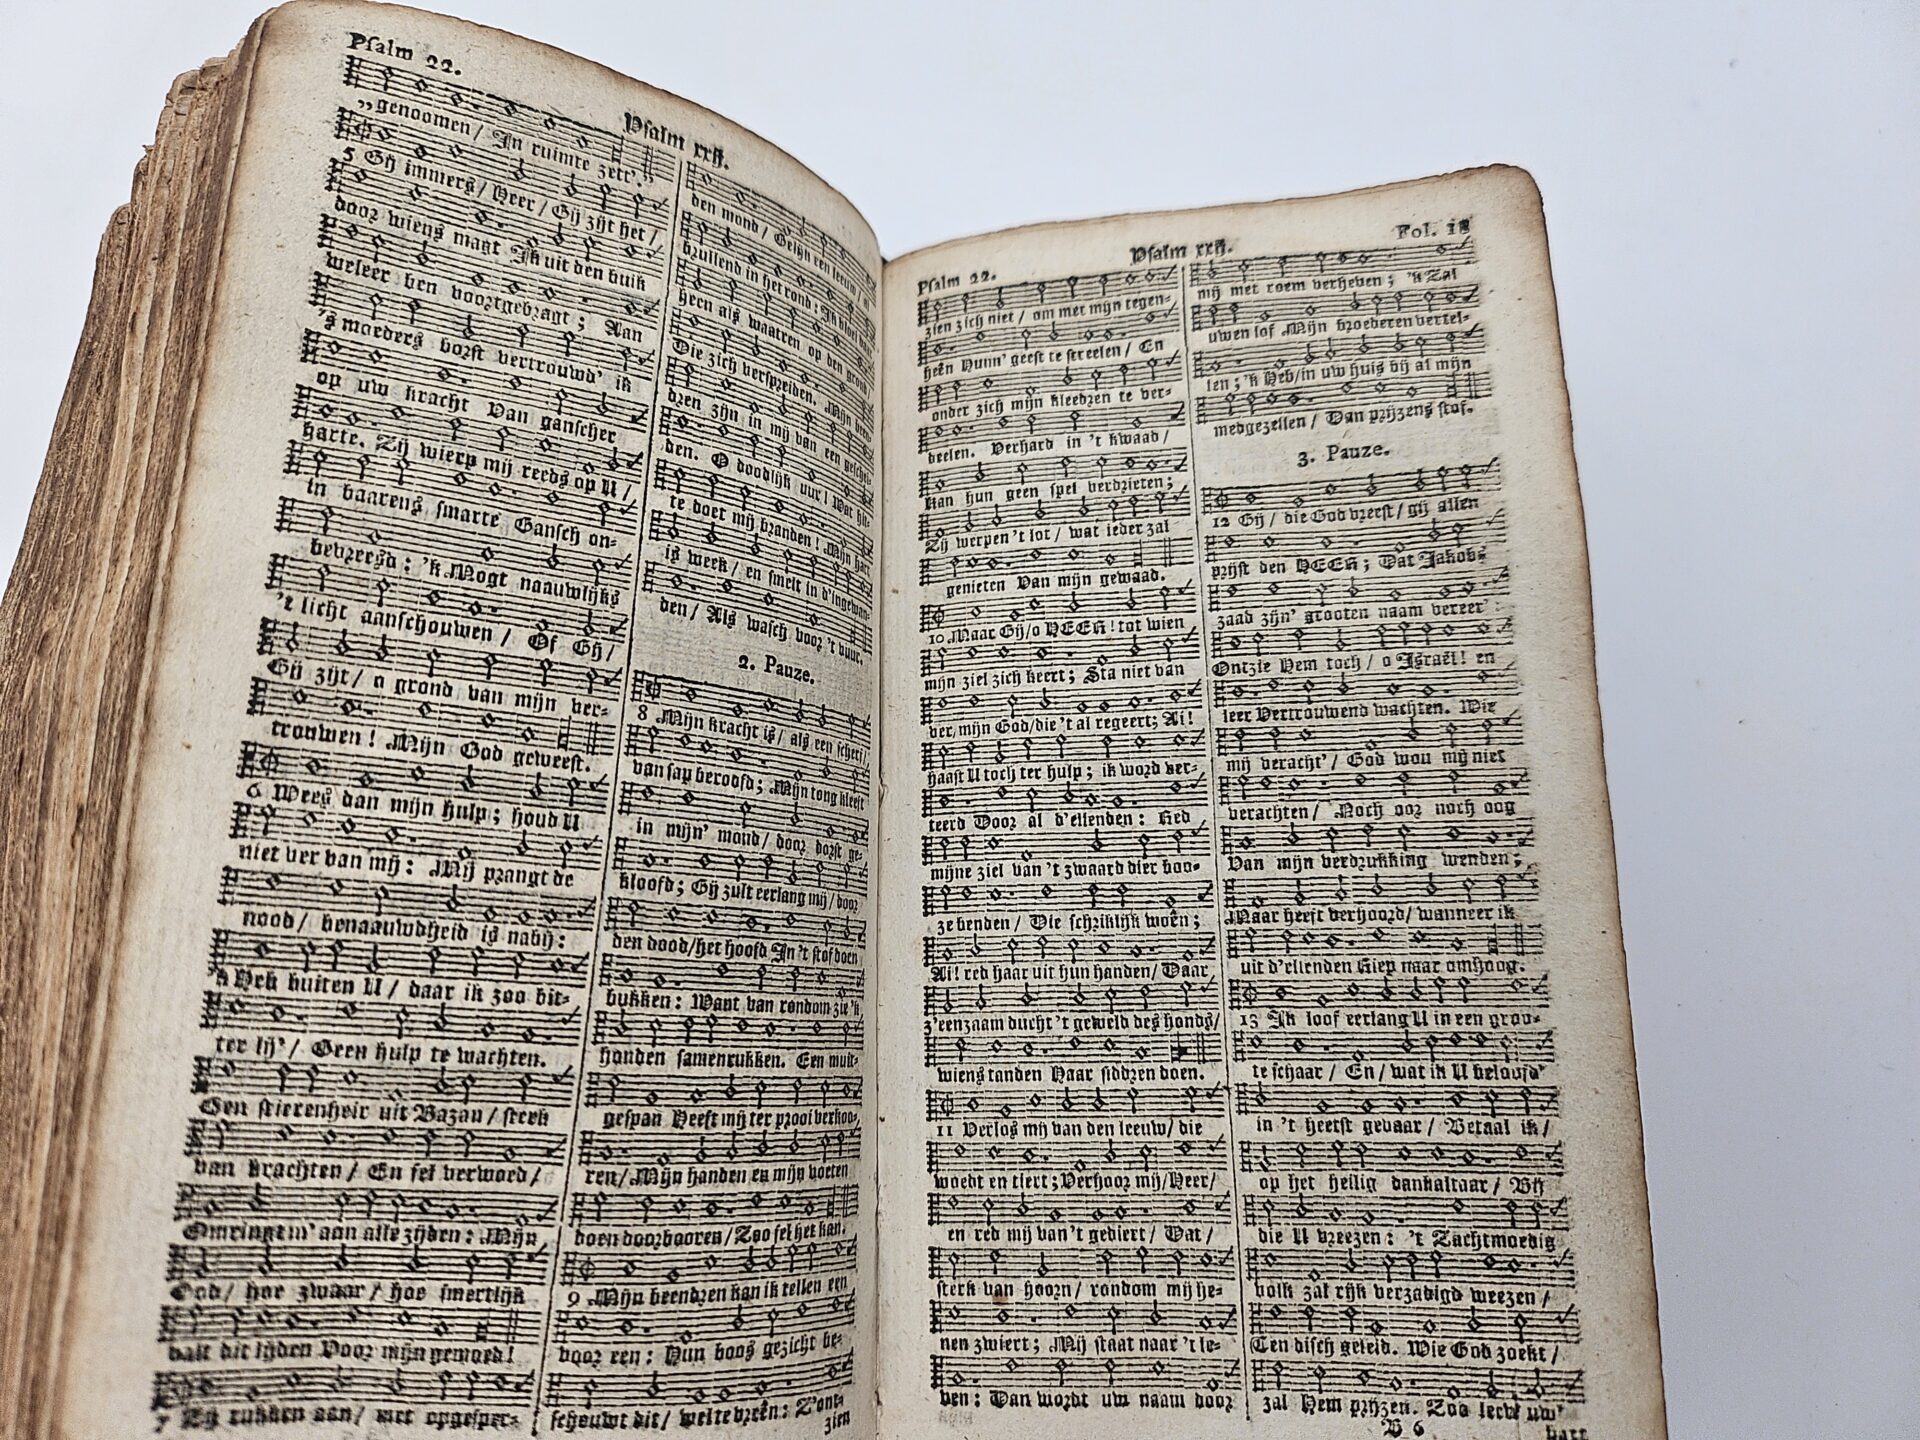 Psalm 22.
Psalm xxij.
„genoomen/ In ruimte zett'.”
5 Gij immers/ Heer/ Gij zijt het/
door wiens magt Ik uit den buik
weleer ben voortgebragt; Aan
's moeders borst vertrouwd' ik
op uw kracht Van ganscher
harte. Zij wierp mij reeds op U/
in baarens smarte Gansch on-
bevreesd: 'k Mogt naauwlijks
't licht aanschouwen/ Of Gij/
Gij zijt/ o grond van mijn ver-
trouwen! Mijn God geweest.
6 Wees dan mijn hulp; houd U
niet ver van mij: Mij prangt de
nood/ benaauwdheid is nabij:
'k Heb buiten U/ daar ik zoo bit-
ter lij'/ Geen hulp te wachten.
Een stierenheir uit Bazan/ sterk
van krachten/ En fel verwoed/
Omringt m' aan alle zijden: Mijn
God/ hoe zwaar/ hoe smertlijk
valt dit lijden Voor mijn gemoed!
7 Zij rukken aan/ met opgesper-
den mond/ Gelijk een leeuw/ al
brullend in het rond: Ik vloei
heen als waatren op den grond/
Die zich verspreiden. Mijn been-
dren zijn in mij van een geschei-
den. O doodlijk uur! Wat hit-
te doet mij branden! Mijn hart
is week/ en smelt in d'ingewan-
den/ Als wasch voor 't vuur.
2. Pauze.
8 Mijn kracht is/ als een scherf/
van sap beroofd; Mijn tong kleeft
in mijn' mond/ door dorst ge-
kloofd; Gij zult eerlang mij/ door
den dood/ het hoofd In 't stof doen
bukken: Want van rondom zie 'k
honden samenrukken. Een muit-
gespan Heeft mij ter prooi verkoo-
ren/ Mijn handen en mijn voeten
doen doorbooren/ Zoo fel het kan.
9 Mijn beendren kan ik tellen een
voor een: Hun boos gezicht be-
schouwt dit/ wel te vreên: Z'ont-
zien
Psalm 22.
Psalm xxij.
Fol. 18
zien zich niet/ om met mijn tegen-
heên Hunn' geest te streelen/ En
onder zich mijn kleedren te ver-
deelen. Verhard in 't kwaad/
kan hun geen spel verdrieten;
Zij werpen 't lot/ wat ieder zal
genieten Van mijn gewaad.
10 Maar Gij/ o HEER! tot wien
mijn ziel zich keert; Sta niet van
ver, mijn God/ die 't al regeert; Ai!
haast U toch ter hulp; ik word ver-
teerd Door al d'ellenden: Red
mijne ziel van 't zwaard dier boo-
ze benden/ Die schriklijk woên;
Ai! red haar uit hun handen/ Daar
z'eenzaam ducht 't geweld des honds/
wiens tanden Haar siddren doen.
11 Verlos mij van den leeuw/ die
woedt en tiert; Verhoor mij/ Heer/
en red mij van 't gediert/ Dat/
sterk van hoorn/ rondom mij he-
nen zwiert; Mij staat naar 't le-
ven: Dan wordt uw naam door
mij met roem verheven; 'k Zal
uwen lof Mijn broederen vertel-
len; 'k Heb/ in uw huis bij al mijn
medgezellen/ Van prijzens stof.
3. Pauze.
12 Gij/ die God vreest/ gij allen
prijst den HEER; Dat Jakobs
zaad zijn' grooten naam vereer' :
Ontzie Hem toch/ o Israël! en
leer Vertrouwend wachten. Wie
mij veracht'/ God wou mij niet
verachten/ Noch oor noch oog
Van mijn verdrukking wenden;
Maar heeft verhoord/ wanneer ik
uit d'ellenden Riep naar omhoog.
13 Ik loof eerlang U in een groo-
te schaar/ En/ wat ik U beloofd'
in 't heetst gevaar/ Betaal ik/
op het heilig dankaltaar/ Bij
die U vreezen: 't Zachtmoedig
volk zal rijk verzadigd weezen/
Ten disch geleid. Wie God zoekt/
zal Hem prijzen. Zoo leev' uw'
B 6
hart